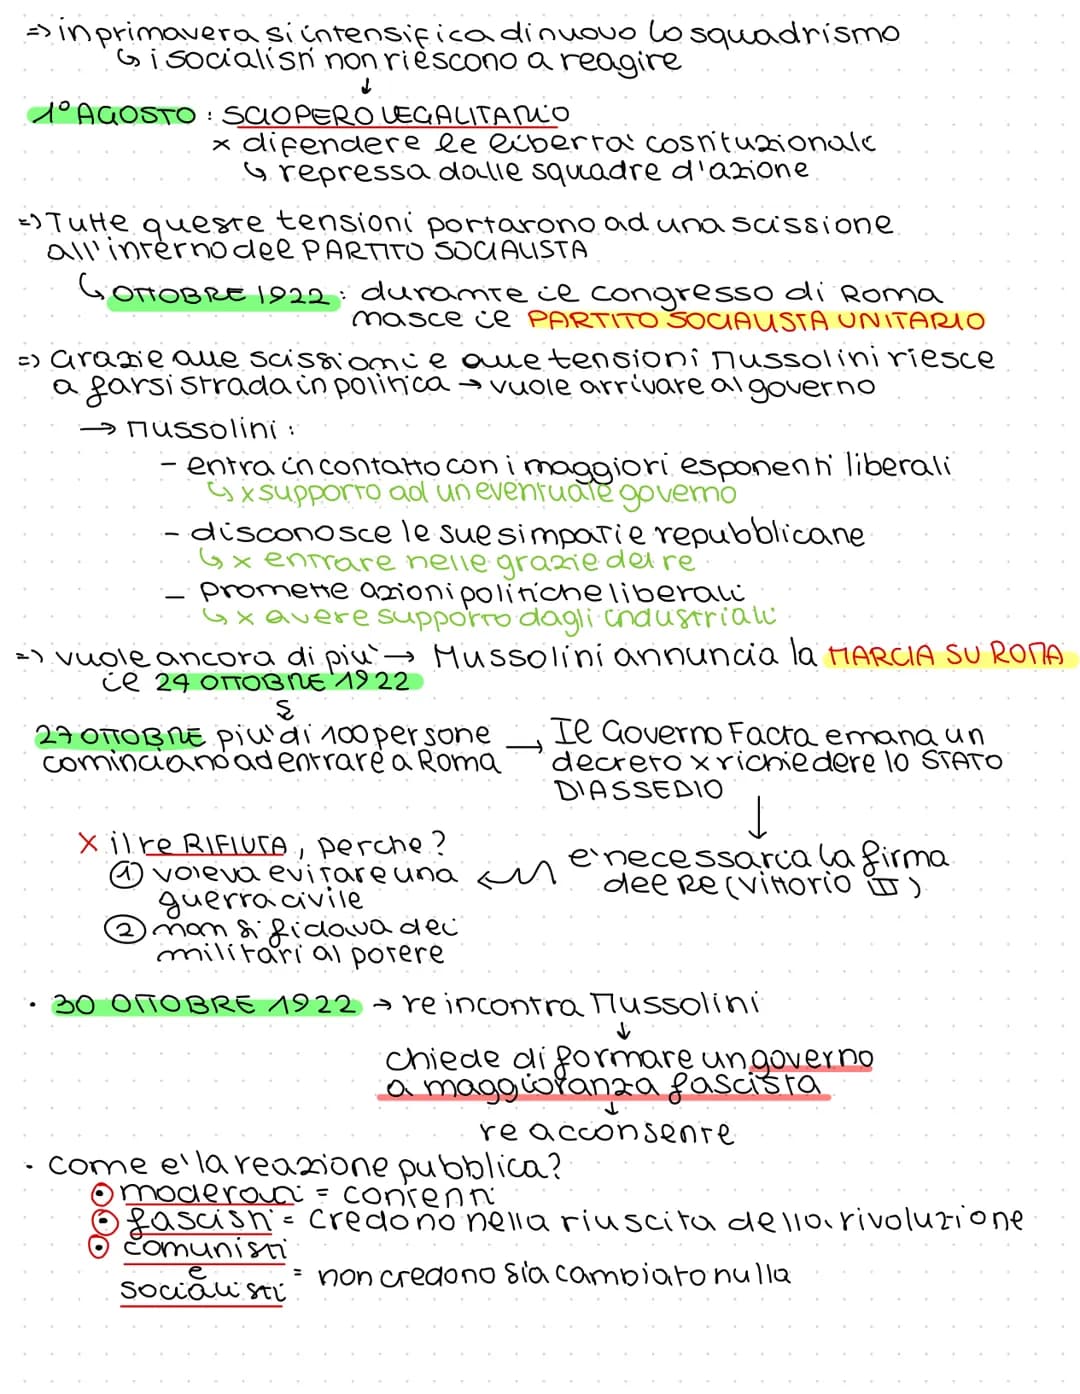 => in primavera si intensifica di nuovo lo squadrismo
↳ i socialisti non riescono a reagire
↓
1° AGOSTO : SCIOPERO LEGALITARIO
x difendere le libertà costituzionale
↳ repressa dalle squadre d'azione
=> Tutte queste tensioni portarono ad una scissione
all'interno del PARTITO SOCIALISTA
↳ OTTOBRE 1922 : durante il congresso di Roma
nasce il PARTITO SOCIALISTA UNITARIO
=> Grazie alle scissioni e alle tensioni Mussolini riesce
a farsi strada in politica → vuole arrivare al governo
→ Mussolini :
- entra in contatto con i maggiori esponenti liberali
↳ x supporto ad un eventuale governo
- disconosce le sue simpatie repubblicane
↳ x entrare nelle grazie del re
- promette azioni politiche liberali
↳ x avere supporto dagli industriali
=> vuole ancora di più → Mussolini annuncia la MARCIA SU ROMA
il 24 OTTOBRE 1922
27 OTTOBRE più di 100 persone → Il Governo Facta emana un
cominciano ad entrare a Roma decreto x richiedere lo STATO
D'ASSEDIO
↓
x il re RIFIUTA, perche?
è necessaria la firma
① voleva evitare una
del Re (Vittorio III)
guerra civile
② non si fidava dei
militari al potere
· 30 OTTOBRE 1922 → re incontra Mussolini
↓
chiede di formare un governo
a maggioranza fascista
↓
re acconsente
· come e' la reazione pubblica?
⊙ moderati = contenti
⊙ fascisti = credono nella riuscita della rivoluzione
⊙ comunisti
e
= non credono sia cambiato nulla
socialisti